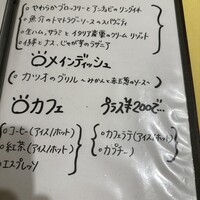 ○やわらかブロッコリーとアンチョビのリングイネ
○魚介のトマトラグーソースのスパゲティ
○生ハム、サラミとイタリア産栗のクリームリゾット
○仔羊とナス、じゃが芋のラザニア
メインディッシュ
○カツオのグリル 〜みかんと赤玉葱のソース〜
カフェ プラス¥200で…
○コーヒー(アイス/ホット)
○紅茶(アイス/ホット)
○エスプレッソ
○カフェラテ(アイス/ホット)
○カプチーノ